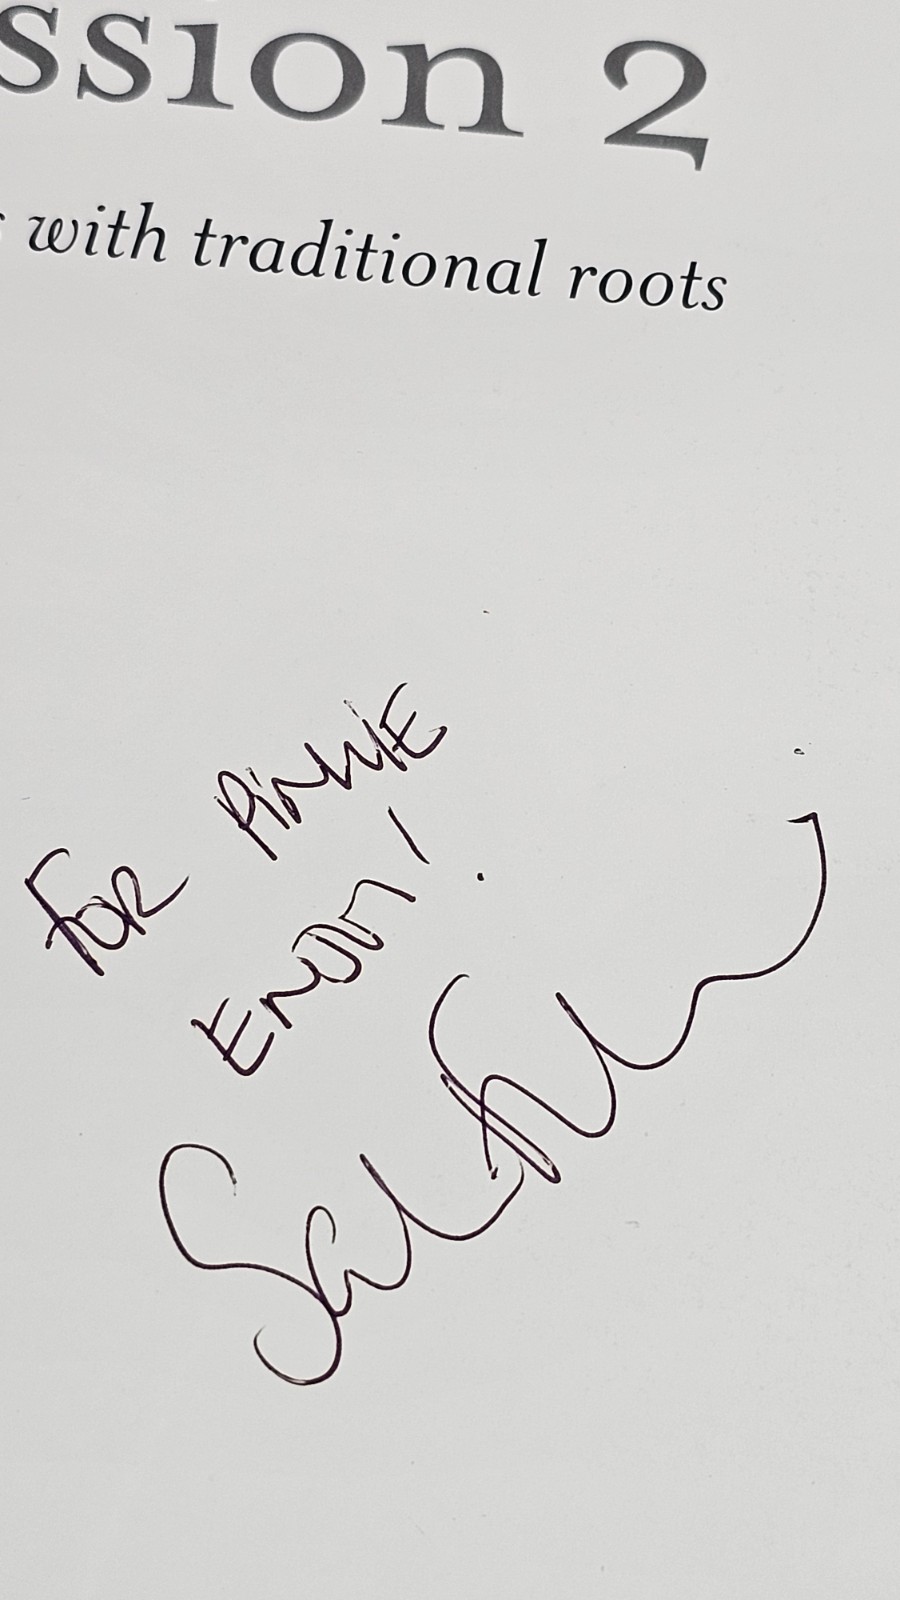 ssion 2
with traditional roots
FOR PINNIE
ENJOY!